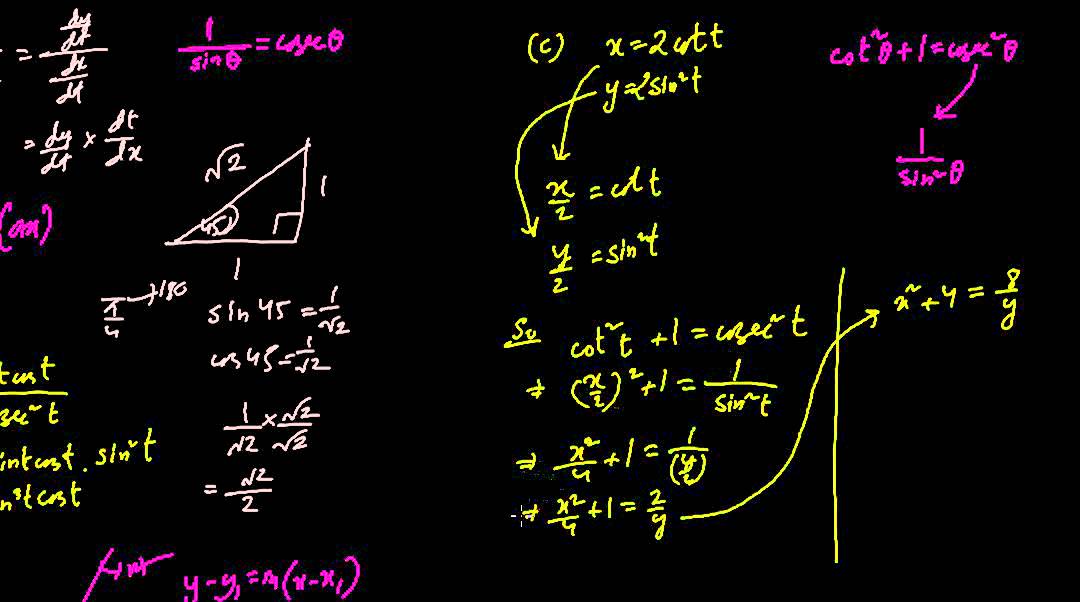 = dy/dt / dx/dt
= dy/dt × dt/dx
(m)
1/sinθ = cosecθ
√2
45
1
1
π/4 → 180
sin 45 = 1/√2
cos 45 = 1/√2
1/√2 × √2/√2
= √2/2
cost
sec² t
intcost . sin² t
n³t cost
m
y - y₁ = m(x - x₁)
(c) x = 2 cot t
y = 2sin² t
x/2 = cot t
y/2 = sin² t
So cot² t + 1 = cosec² t
⇒ (x/2)² + 1 = 1/sin² t
⇒ x²/4 + 1 = 1/(y/2)
⇒ x²/4 + 1 = 2/y
cot²θ + 1 = cosec²θ
1/sin²θ
x² + 4 = 8/y